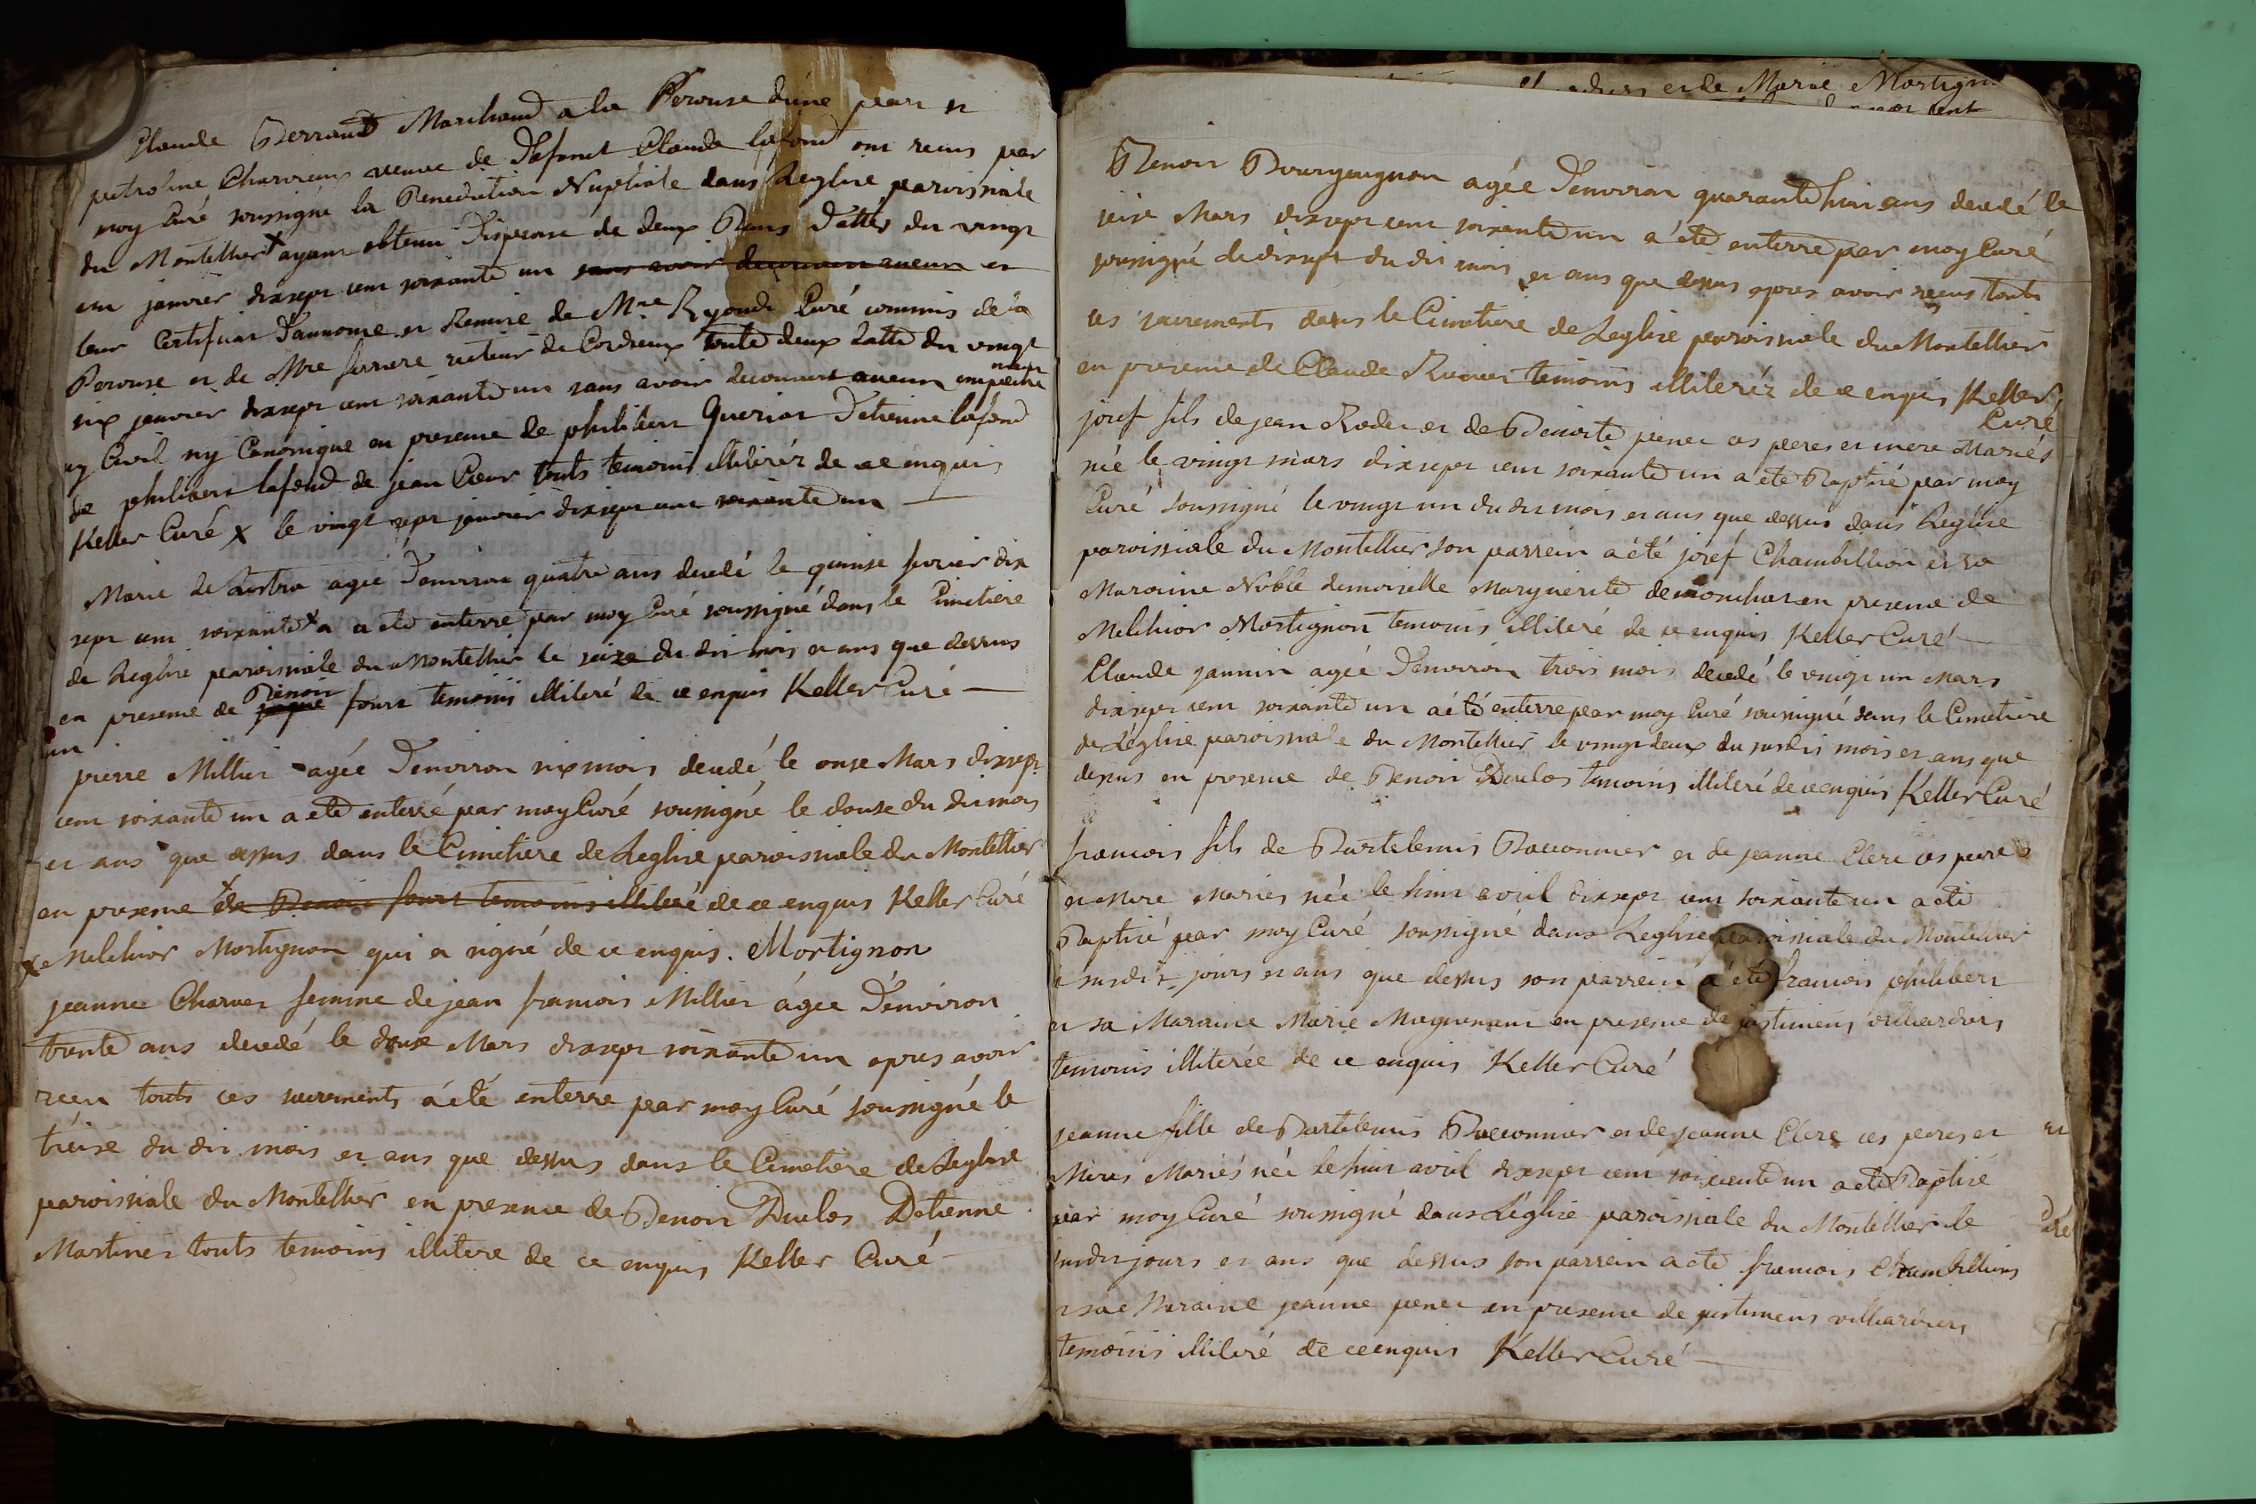 Claude Perraud Marchand a la Perouse d'une part et
petroline Charvieux veuve de Defunct Claude lafond ont recus par
moy Curé soussigné la Benediction Nuptiale dans Leglise paroissiale
du Montellier x ayant obtenu Dispense de deux Bans Dattés du vingt
en janvier dixsept cent soixante un sans avoir decouvert aucun et
leur Certificat Dannonce et Remise de Mre Curé commis de la
Perouse et de Mre ferrere recteur de Cordieux toute deux Datté du vingt
six janvier dixsept cent soixante un sans avoir decouvert aucun empeche ment
ny Civil ny Canonique en presence de philibert Queriat Detienne lafond
de philibert lafond de jean Coeur touts temoins illiterér de ce enquis
Keller Curé x le vingt sept janvier dixsept cent soixante un
Marie de agée Denviron quatre ans decedé le quinse fevrier dix
sept cent soixante x a a eté enterré par moy Curé soussigné dans le Cimetiere
de Leglise paroissiale du Montellier le seize du dit mois et ans que dessus
en presence de jaque Benoit fourt temoins illiteré de ce enquis Keller Curé
un
pierre Millier agée Denviron six mois decedé le onse Mars dixsept
cent soixante un a eté enterré par moy Curé soussigné le douse du dit mois
et ans que dessus dans le Cimetiere de Leglise paroissiale du Montellier
en presence x de Benoit fourt temoins illiteré de ce enquis Keller Curé
x Melchior Mortignon qui a signé de ce enquis. Mortignon
jeanne Charver femme de jean francois Millier agée Denviron
trente ans decedé le douse Mars dixsept soixante un apres avoir
recu touts ces sacrements a été enterre par moy Curé soussigné le
treise du dit mois et ans que dessus dans le Cimetiere de Leglise
paroissiale du Montellier en presence de Benoit Duclos Detienne
Martinet touts temoins illitere de ce enquis Keller Curé
et de Marie Mortign
Benoit Bourguignon agée Denviron quarante huit ans decedé le
seise Mars dixsept cent soixante un a été enterré par moy Curé
soussigné le dixsept du dit mois et ans que dessus apres avoir recus touts
ces sacrements dans le Cimetiere de Leglise paroissiale du Montellier
en presence de Claude temoins illiterér de ce enquis Keller
Curé
josef fils de jean Rodet et de Benoite penet ces peres et mere Mariés
née le vingt mars dixsept cent soixante un a eté Baptisé par moy
Curé soussigné le vingt un du dit mois et ans que dessus dans Leglise
paroissiale du Montellier son parrein a été josef Chambillion et sa
Maraine Noble demoiselle Marguerite demonchat en presence de
Melchior Mortignon temoins illiteré de ce enquis Keller Curé
Claude jannin agée Denviron trois mois decedé le vingt un Mars
dixsept cent soixante un a été enterré par moy Curé soussigné dans le Cimetiere
de Léglise paroissiale du Montellier le vingt deux du susdit mois et ans que
dessus en presence de Benoit Duclos temoins illiteré de ce enquis Keller Curé
francois fils de Bartelemis Bacconnier et de jeanne Clerc ces peres
et Mere Mariés née le huit avril dixsept cent soixante un a eté
Baptisé par moy Curé soussigné dans Leglise paroissiale du Montellier
le susdit jours et ans que dessus son parrein a été francois philibert
et sa Maraine Marie Magnenant en presence de justiniens villiardiers
temoins illiterée de ce enquis Keller Curé
jeanne fille de Bartelemis Bacconnier et de jeanne Clerc ces peres et
Meres Mariés née le huit avril dixsept cent soixante un a eté Baptisé
par moy Curé soussigné dans Léglise paroissiale du Montellier le
susdit jours et ans que dessus son parrein a eté francois Chambillions
et sa Maraine jeanne penet en presence de justiniens villiardiers
temoins illiteré de ce enquis Keller Curé